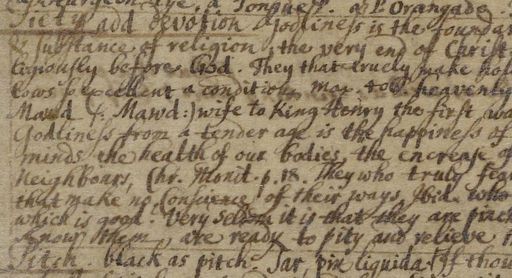 Dye, a Tonguess. a P. Orangade.
Piety add devotion Godliness is the foundat
& substance of religion, the very end of Christ
before God. They that truely make hol
Vows excellent a condition, may heavenly
Mawd (: Mawd:) wife to King Henry the first, wa
Godliness from a tender age is the happiness of
minds, the health of our bodies, the encrease of
Neighbours, Chr. Monit. p. 18. They who truly fea
that make no Conscience of their ways, Ibid. who
which is good. Very seldom it is that they are
them, are ready to pity and relieve
Pitch. black as pitch. Tar, pix liquida. If thou